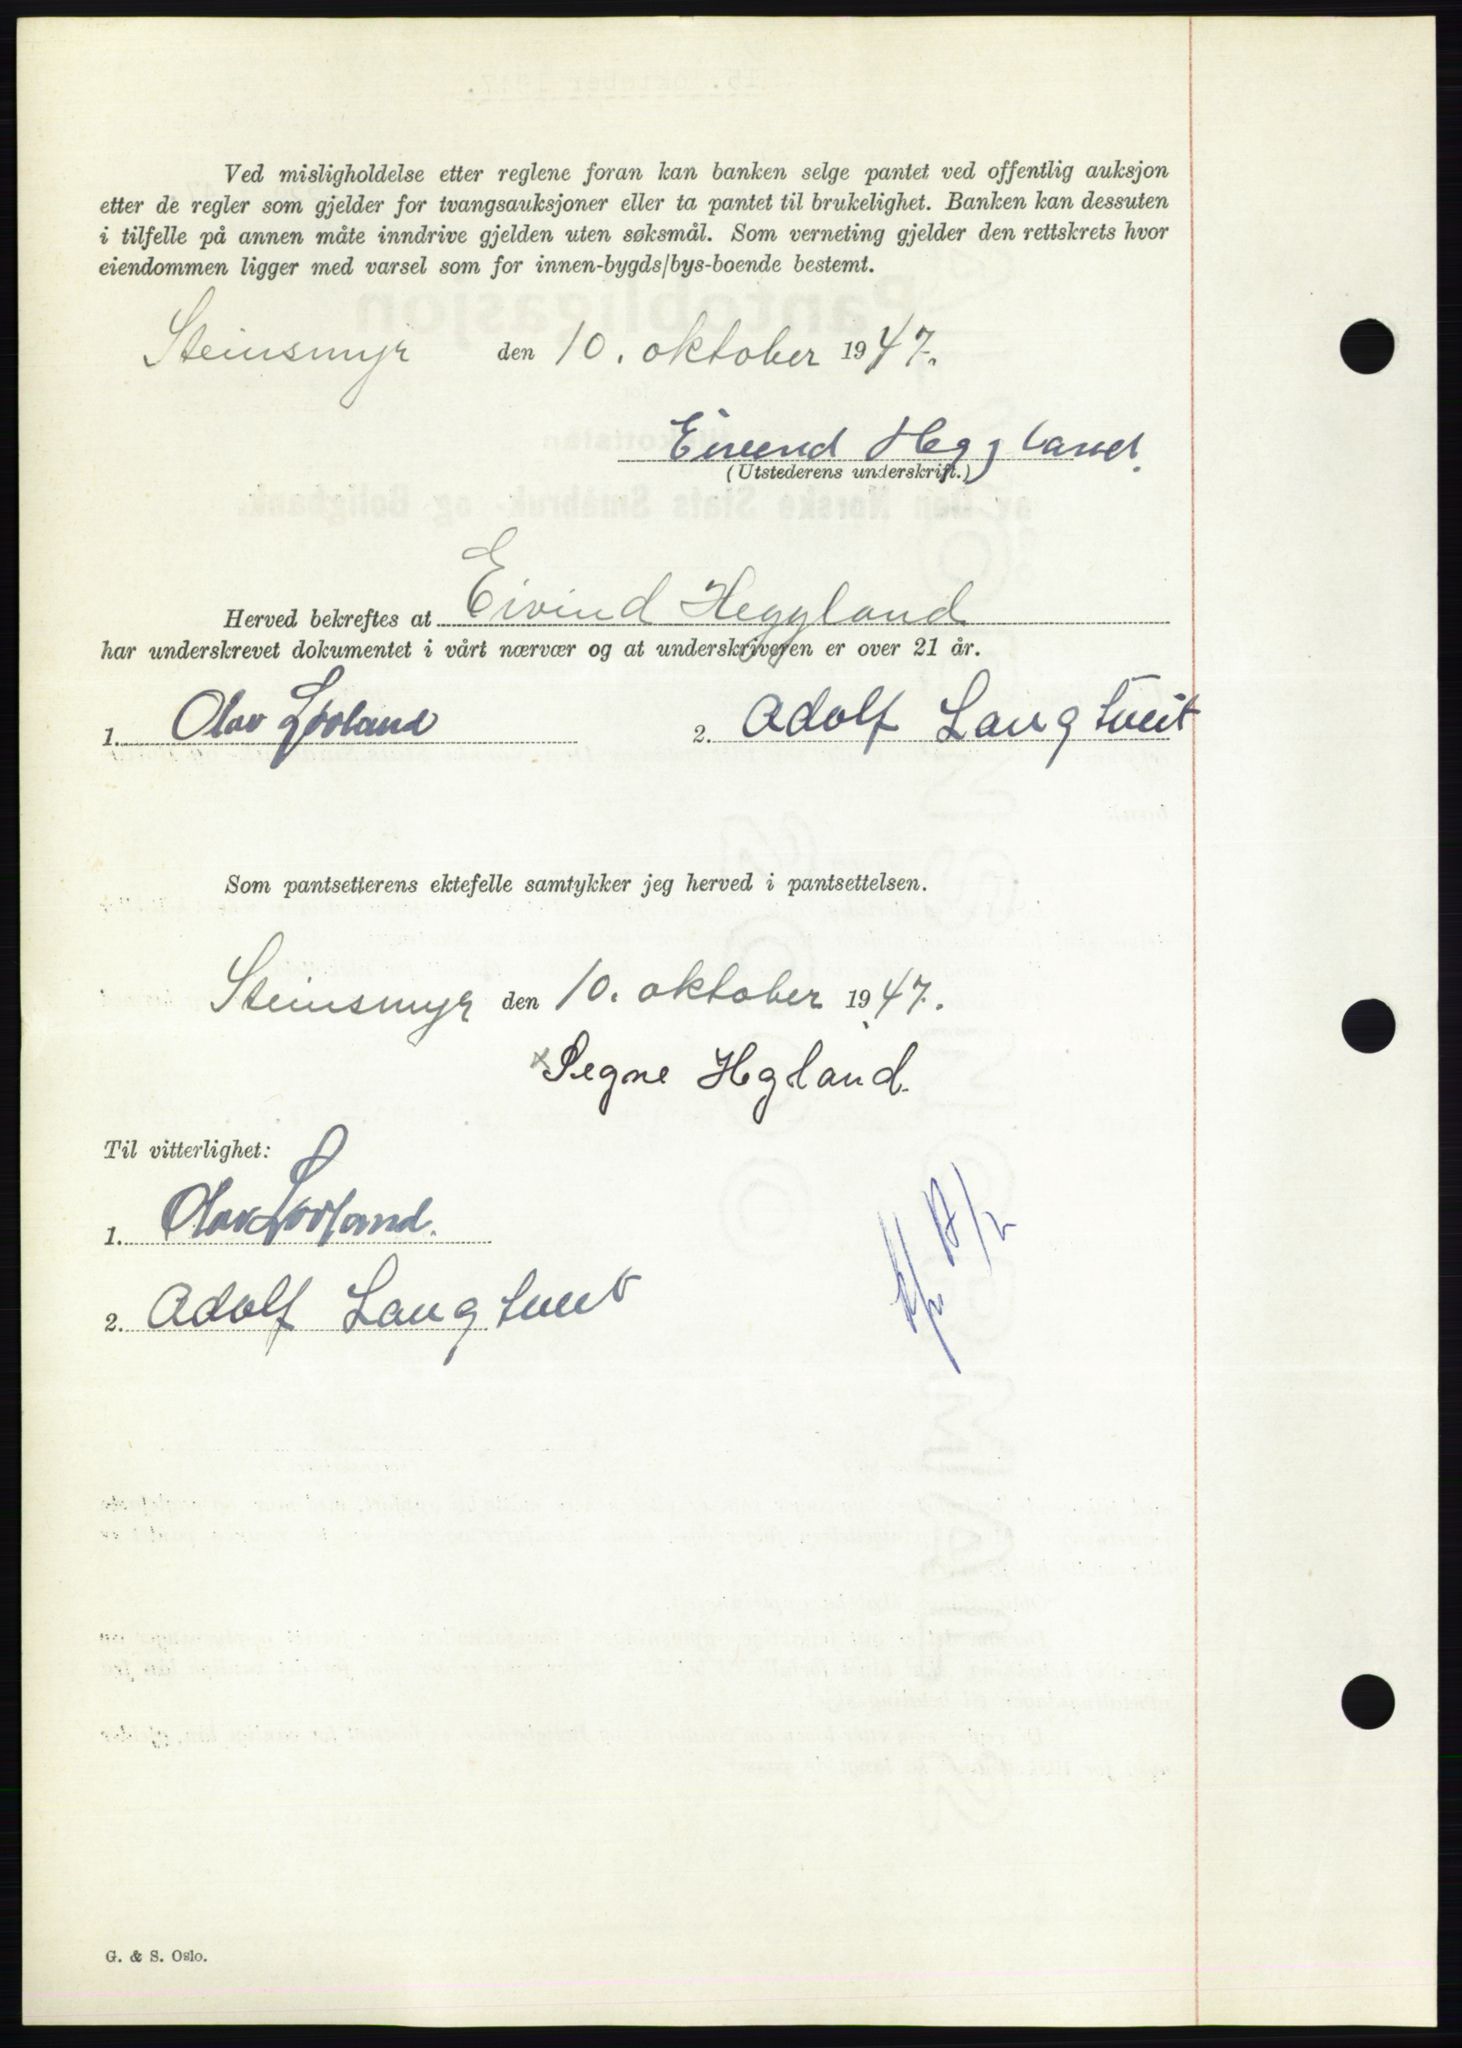 Ved misligholdelse etter reglene foran kan banken selge pantet ved offentlig auksjon
etter de regler som gjelder for tvangsauksjoner eller ta pantet til brukelighet. Banken kan dessuten
i tilfelle på annen måte inndrive gjelden uten søksmål. Som verneting gjelder den rettskrets hvor
eiendommen ligger med varsel som for innen-bygds/bys-boende bestemt.
Steinsmyr den 10. oktober 1947.
Eivend Heggland.
(Utstederens underskrift.)
Herved bekreftes at Eivind Heggland
har underskrevet dokumentet i vårt nærvær og at underskriveren er over 21 år.
1. Olav Lovland 2. Adolf Langtveit
Som pantsetterens ektefelle samtykker jeg herved i pantsettelsen.
Steinsmyr den 10. oktober 1947.
x Segne Hgland.
Til vitterlighet:
1. Olav Lovland.
2. Adolf Langtveit
G. & S. Oslo.